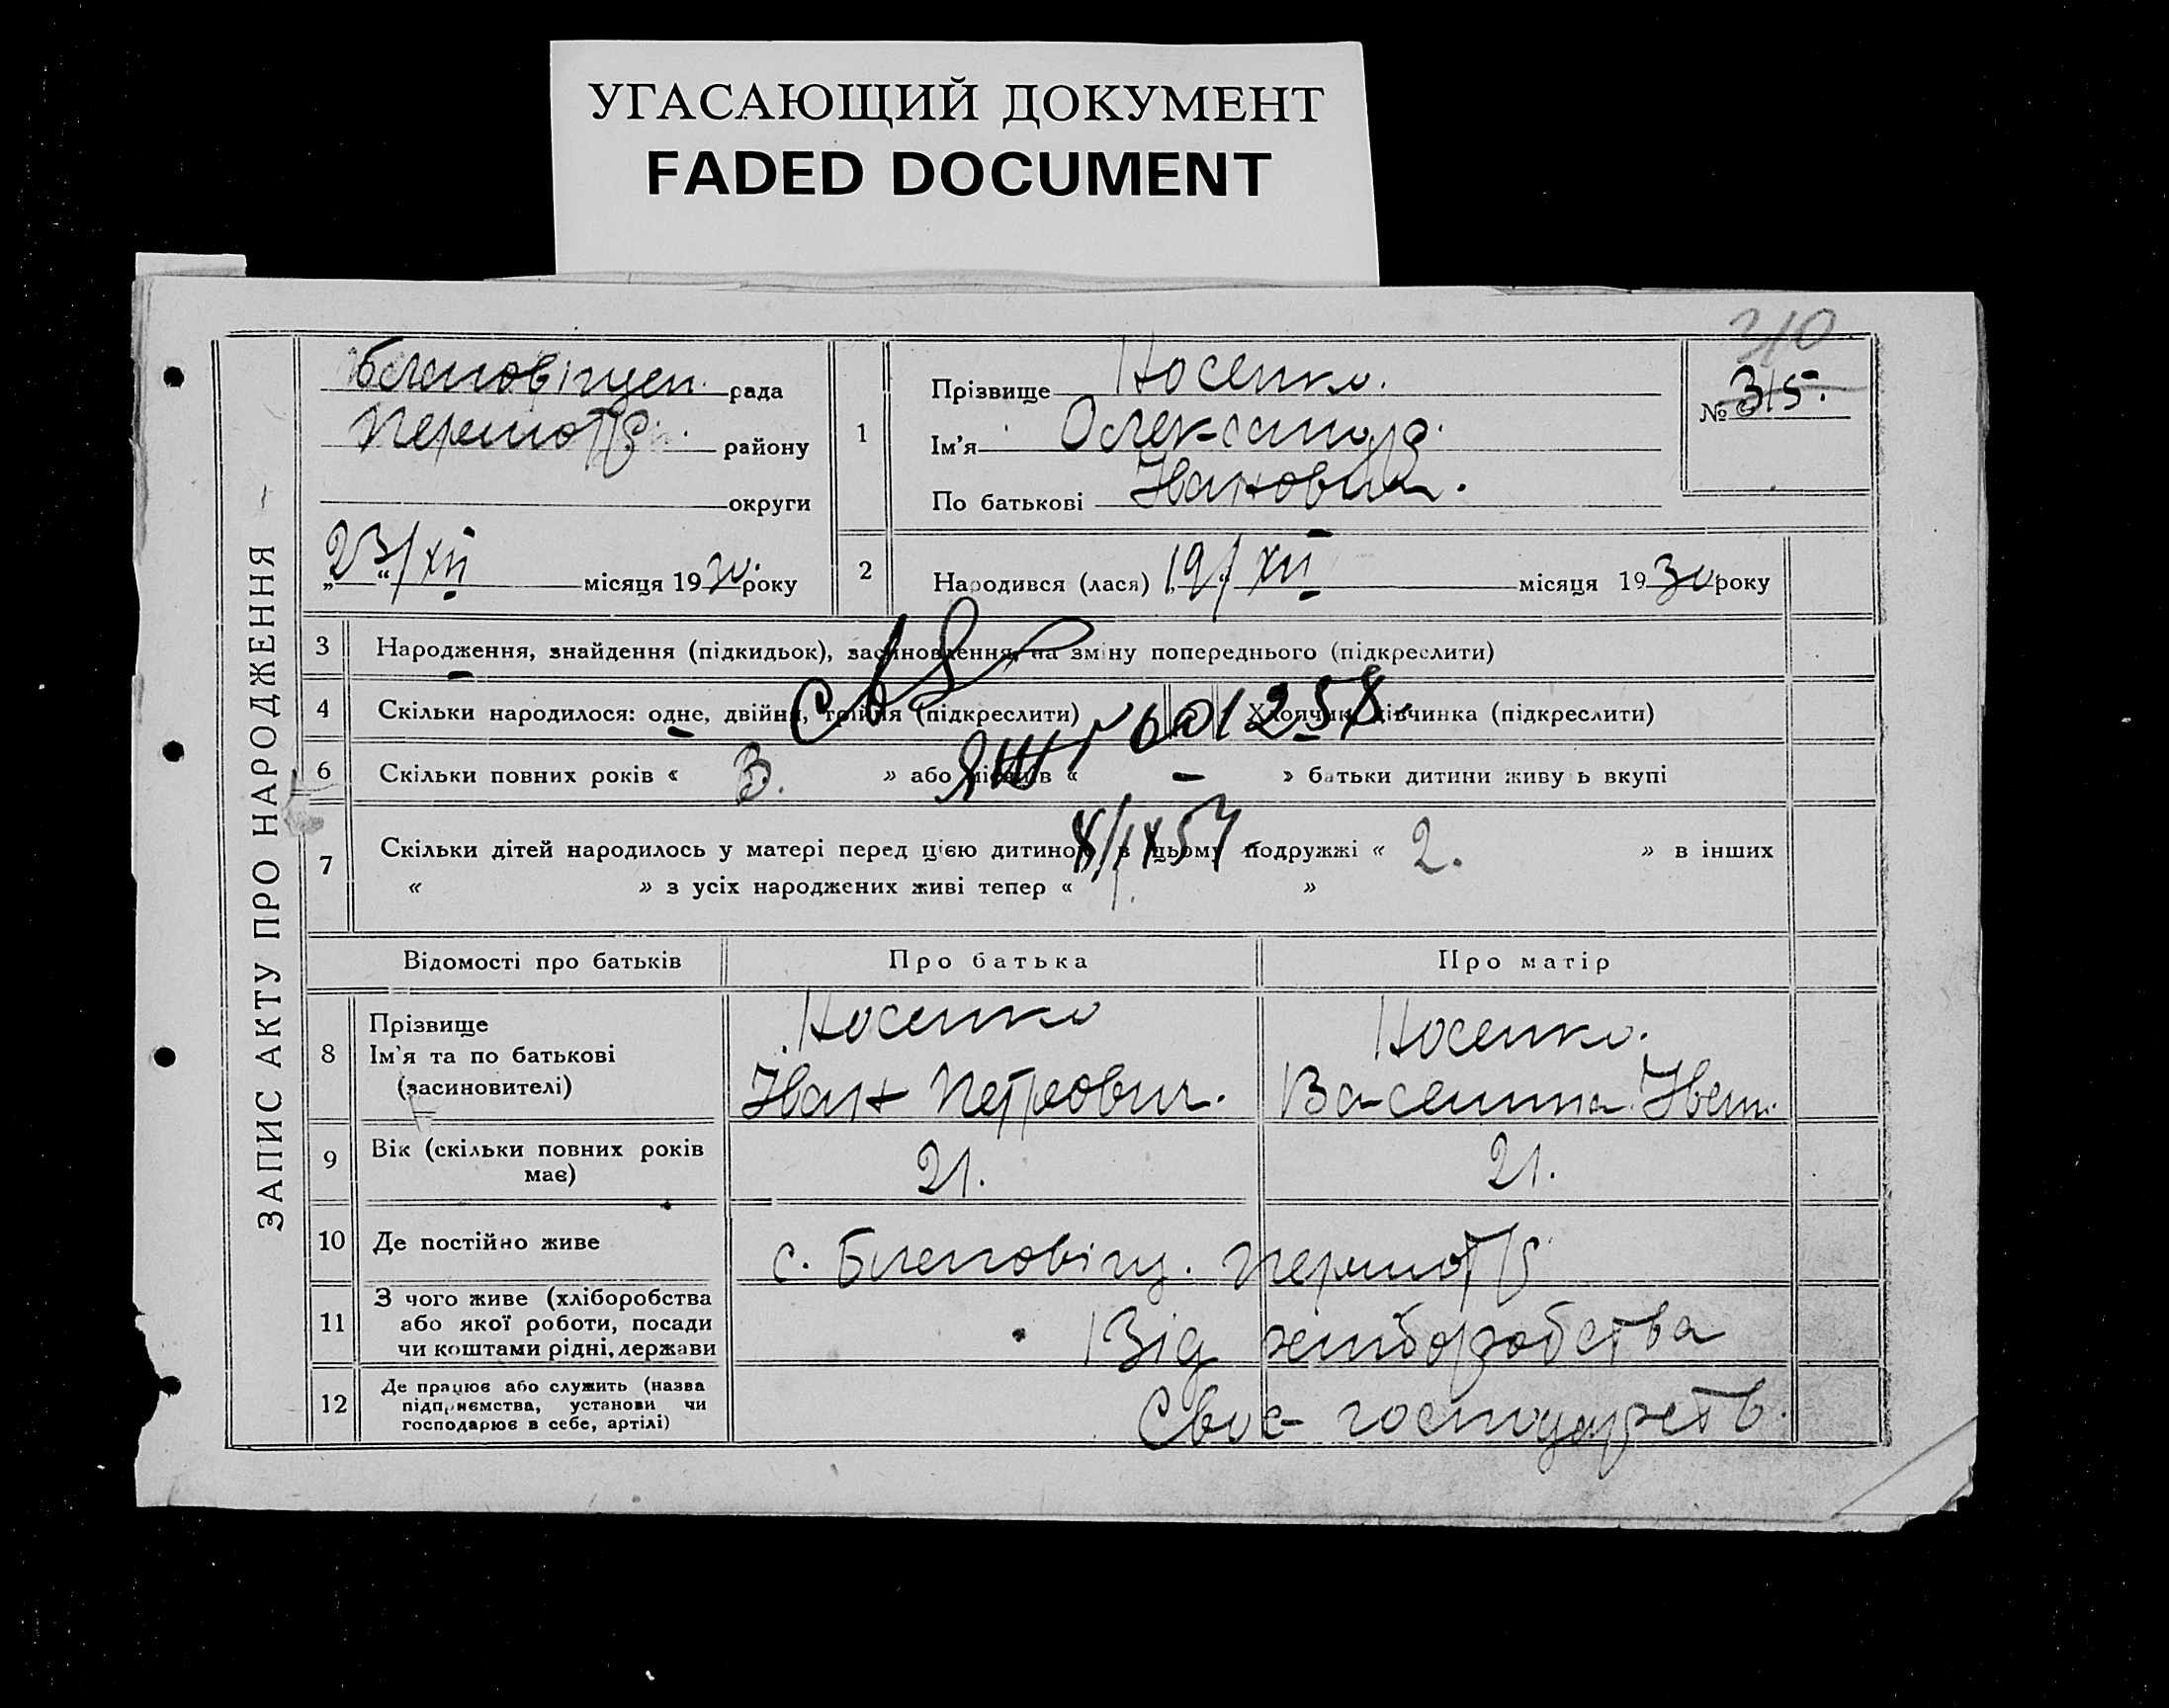 УГАСАЮЩИЙ ДОКУМЕНТ
FADED DOCUMENT
ЗАПИС АКТУ ПРО НАРОДЖЕННЯ
рада
району
округи
23/XII місяця 1930 року
310
№ 315.
1 Прізвище Носенко.
Ім'я Олександр.
По батькові Іванович.
2 Народився (лася) 19/XII місяця 1930 року
3 Народження, знайдення (підкидьок), засиновлення, на зміну попереднього (підкреслити)
4 Скільки народилося: одне, двійня, трійня (підкреслити) Хлопчик, дівчинка (підкреслити)
6 Скільки повних років « 3. » або місяців « – » батьки дитини живуть вкупі
7 Скільки дітей народилось у матері перед цією дитиною в цьому подружжі « 2. » в інших
« » з усіх народжених живі тепер « »
Відомості про батьків Про батька Про матір
8 Прізвище Носенко Носенко.
Ім'я та по батькові Іван Петрович.
(засиновителі)
9 Вік (скільки повних років має) 21. 21.
10 Де постійно живе с.
11 З чого живе (хліборобства
або якої роботи, посади
чи коштами рідні, держави Від хліборобства
12 Де працює або служить (назва
підприємства, установи чи
господарює в себе, артілі) Своє господарств.